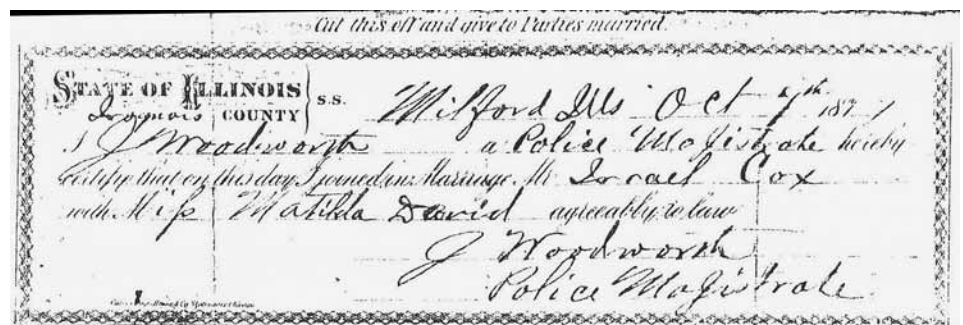 Cut this off and give to Parties married.
STATE OF ILLINOIS
Iroquois COUNTY } S.S. Milford Ills Oct 7th 1877
I J Woodworth a Police Majistrate hereby
certify that on this day I joined in Marriage Mr Israel Cox
with Miss Matilda David agreeably to law
J Woodworth
Police Majistrate